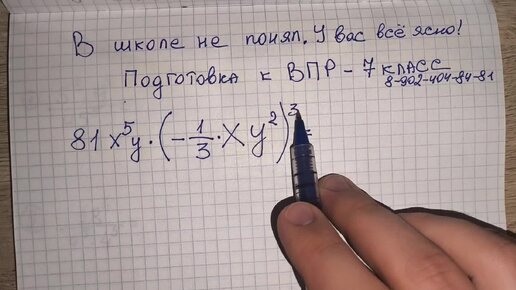 В школе не понял. У вас всё ясно!
Подготовка к ВПР – 7 класс
8-902-404-84-81
81x⁵y·(-1/3·xy²)³=